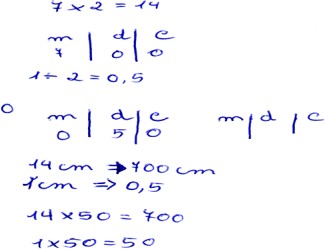 7 x 2 = 14
m | d | c
7 | 0 | 0
1 ÷ 2 = 0,5
m | d | c m | d | c
0 | 5 | 0
14 cm => 700 cm
1 cm => 0,5
14 x 50 = 700
1 x 50 = 50